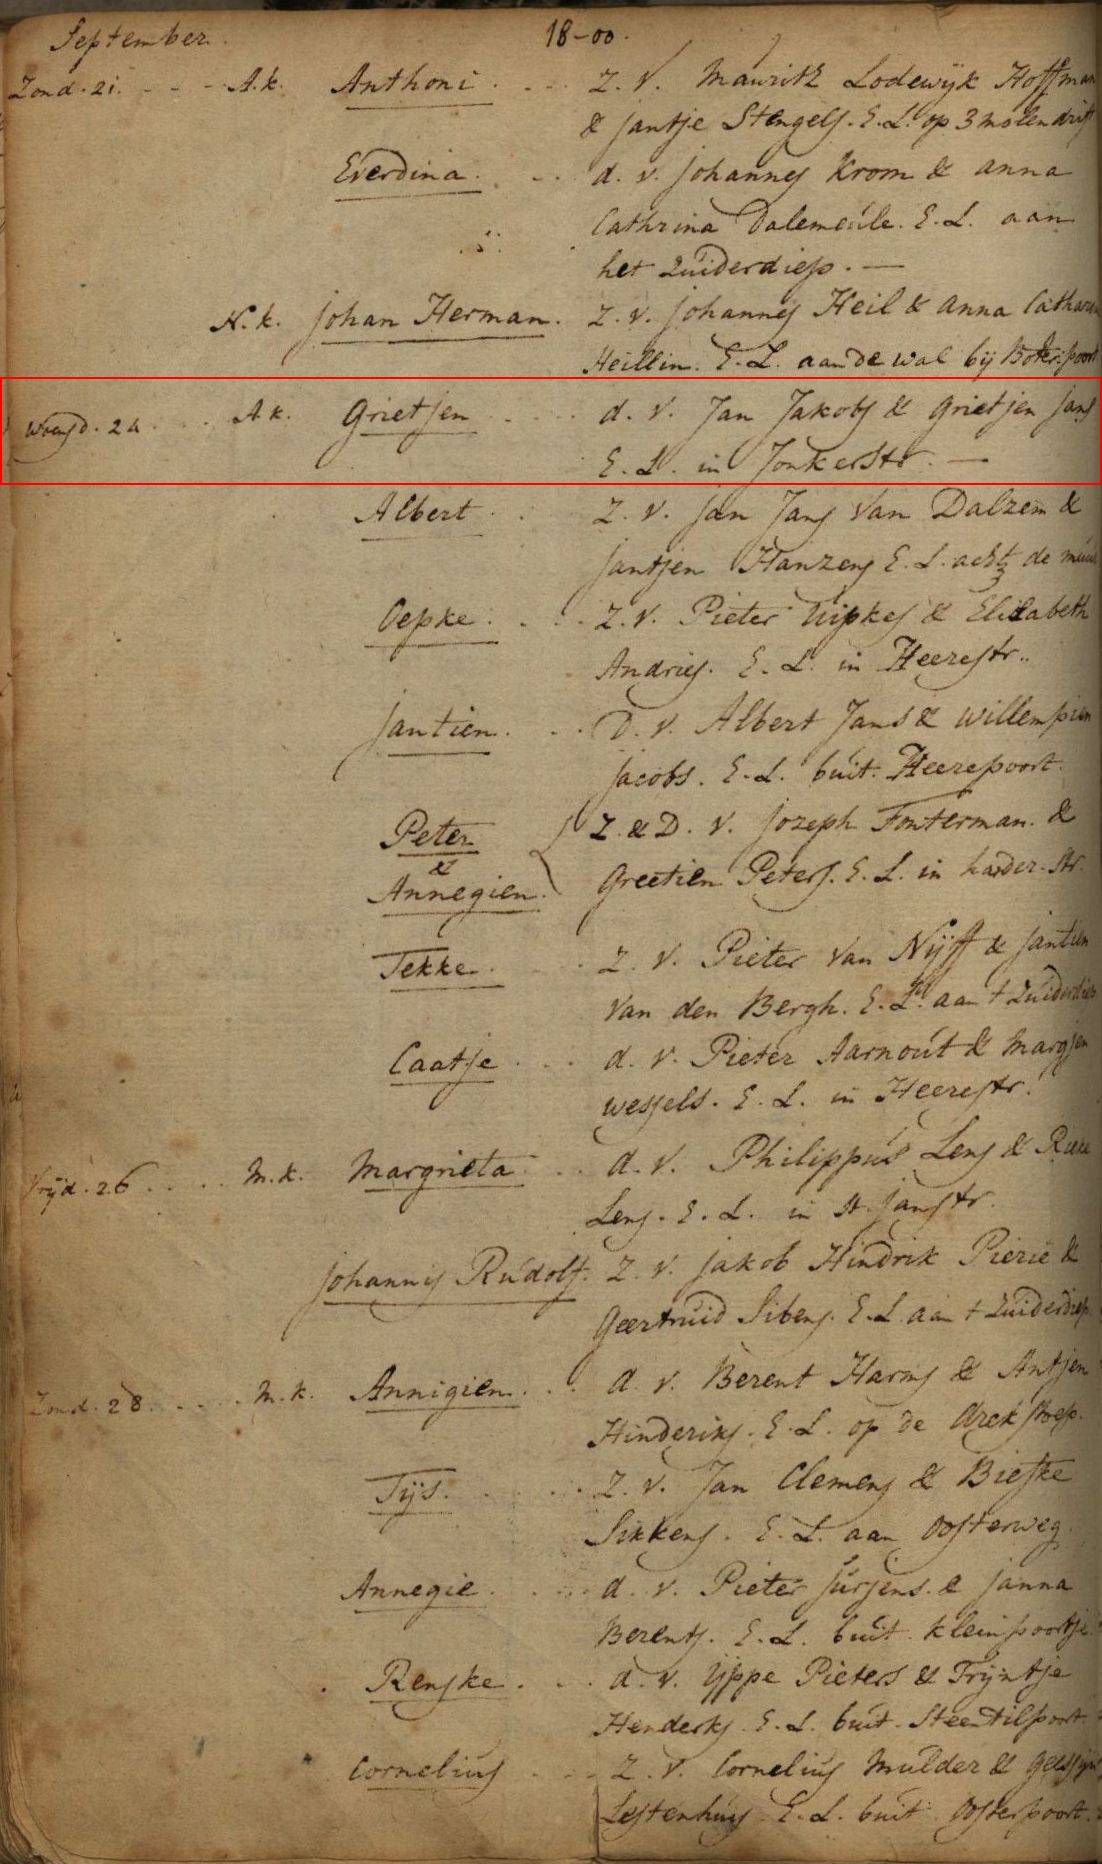 September. 18-00.
Zond. 21. - - - A.k. Anthoni. - - Z. v. Mauritz Lodewijk Hoffman
& Jantje Stengels. E. L. op 3 molendrift
Everdina. - - d. v. Johannes Krom & anna
Cathrina Dalemeule. E. L. aan
het Zuiderdiep. —
N. k. Johan Herman. Z. v. Johannes Heil & Anna Catharin
Heillin. E. L. aan de wal bij Boter-poort
Woensd. 24 . . . A.k. Grietjen . . . d. v. Jan Jakobs & Grietjen Jans
E. L. in Jonkerstr. —
Albert . . Z. v. Jan Jans Van Dalzem &
Jantjen Hanzens E. L. acht de muur
Oepke . . . Z. v. Pieter Uipkes & Elizabeth
Andries. E. L. in Heerestr..
Jantien. . . D. v. Albert Jans & Willempien
Jacobs. E. L. buit. Heerepoort.
Peter Z. & D. v. Jozeph Fonterman. &
&
Annegien. Greetien Peters. E. L. in harder. str.
Tekke. . . Z. v. Pieter Van Nijff & Jantien
Van den Bergh. E. L. aan t Zuiderdiep
Caatje . . . d. v. Pieter Aarnout & Margjen
Wessels. E. L. in Heerestr.
Vrijd. 26 . . . . M.k. Margrieta. . . d. v. Philippus Lens &
Lens. E. L. in St. Janstr.
Johannis Rudolf. Z. v. Jakob Hindrik Pierie &
Geertruid Sibens. E. L. aan t Zuiderdiep
Zond. 28. . . . . M.k. Annigien. . . d. v. Berent Harms & Antjen
Hinderiks. E. L. op de drekstoep.
Tijs. . . . Z. v. Jan Clemens & Bieske
Sikkens. E. L. aan Oosterweg.
Annegie. . . . d. v. Pieter Jurjens. & Janna
Berents. E. L. buit. kleinpoortje.
Renske. . . d. v. Yppe Pieters & Trijntje
Henderks. E. L. buit. Steentilpoort.
Cornelius . . Z. v. Cornelius Mulder &
Lestenhuis. E. L. buit Oosterpoort.